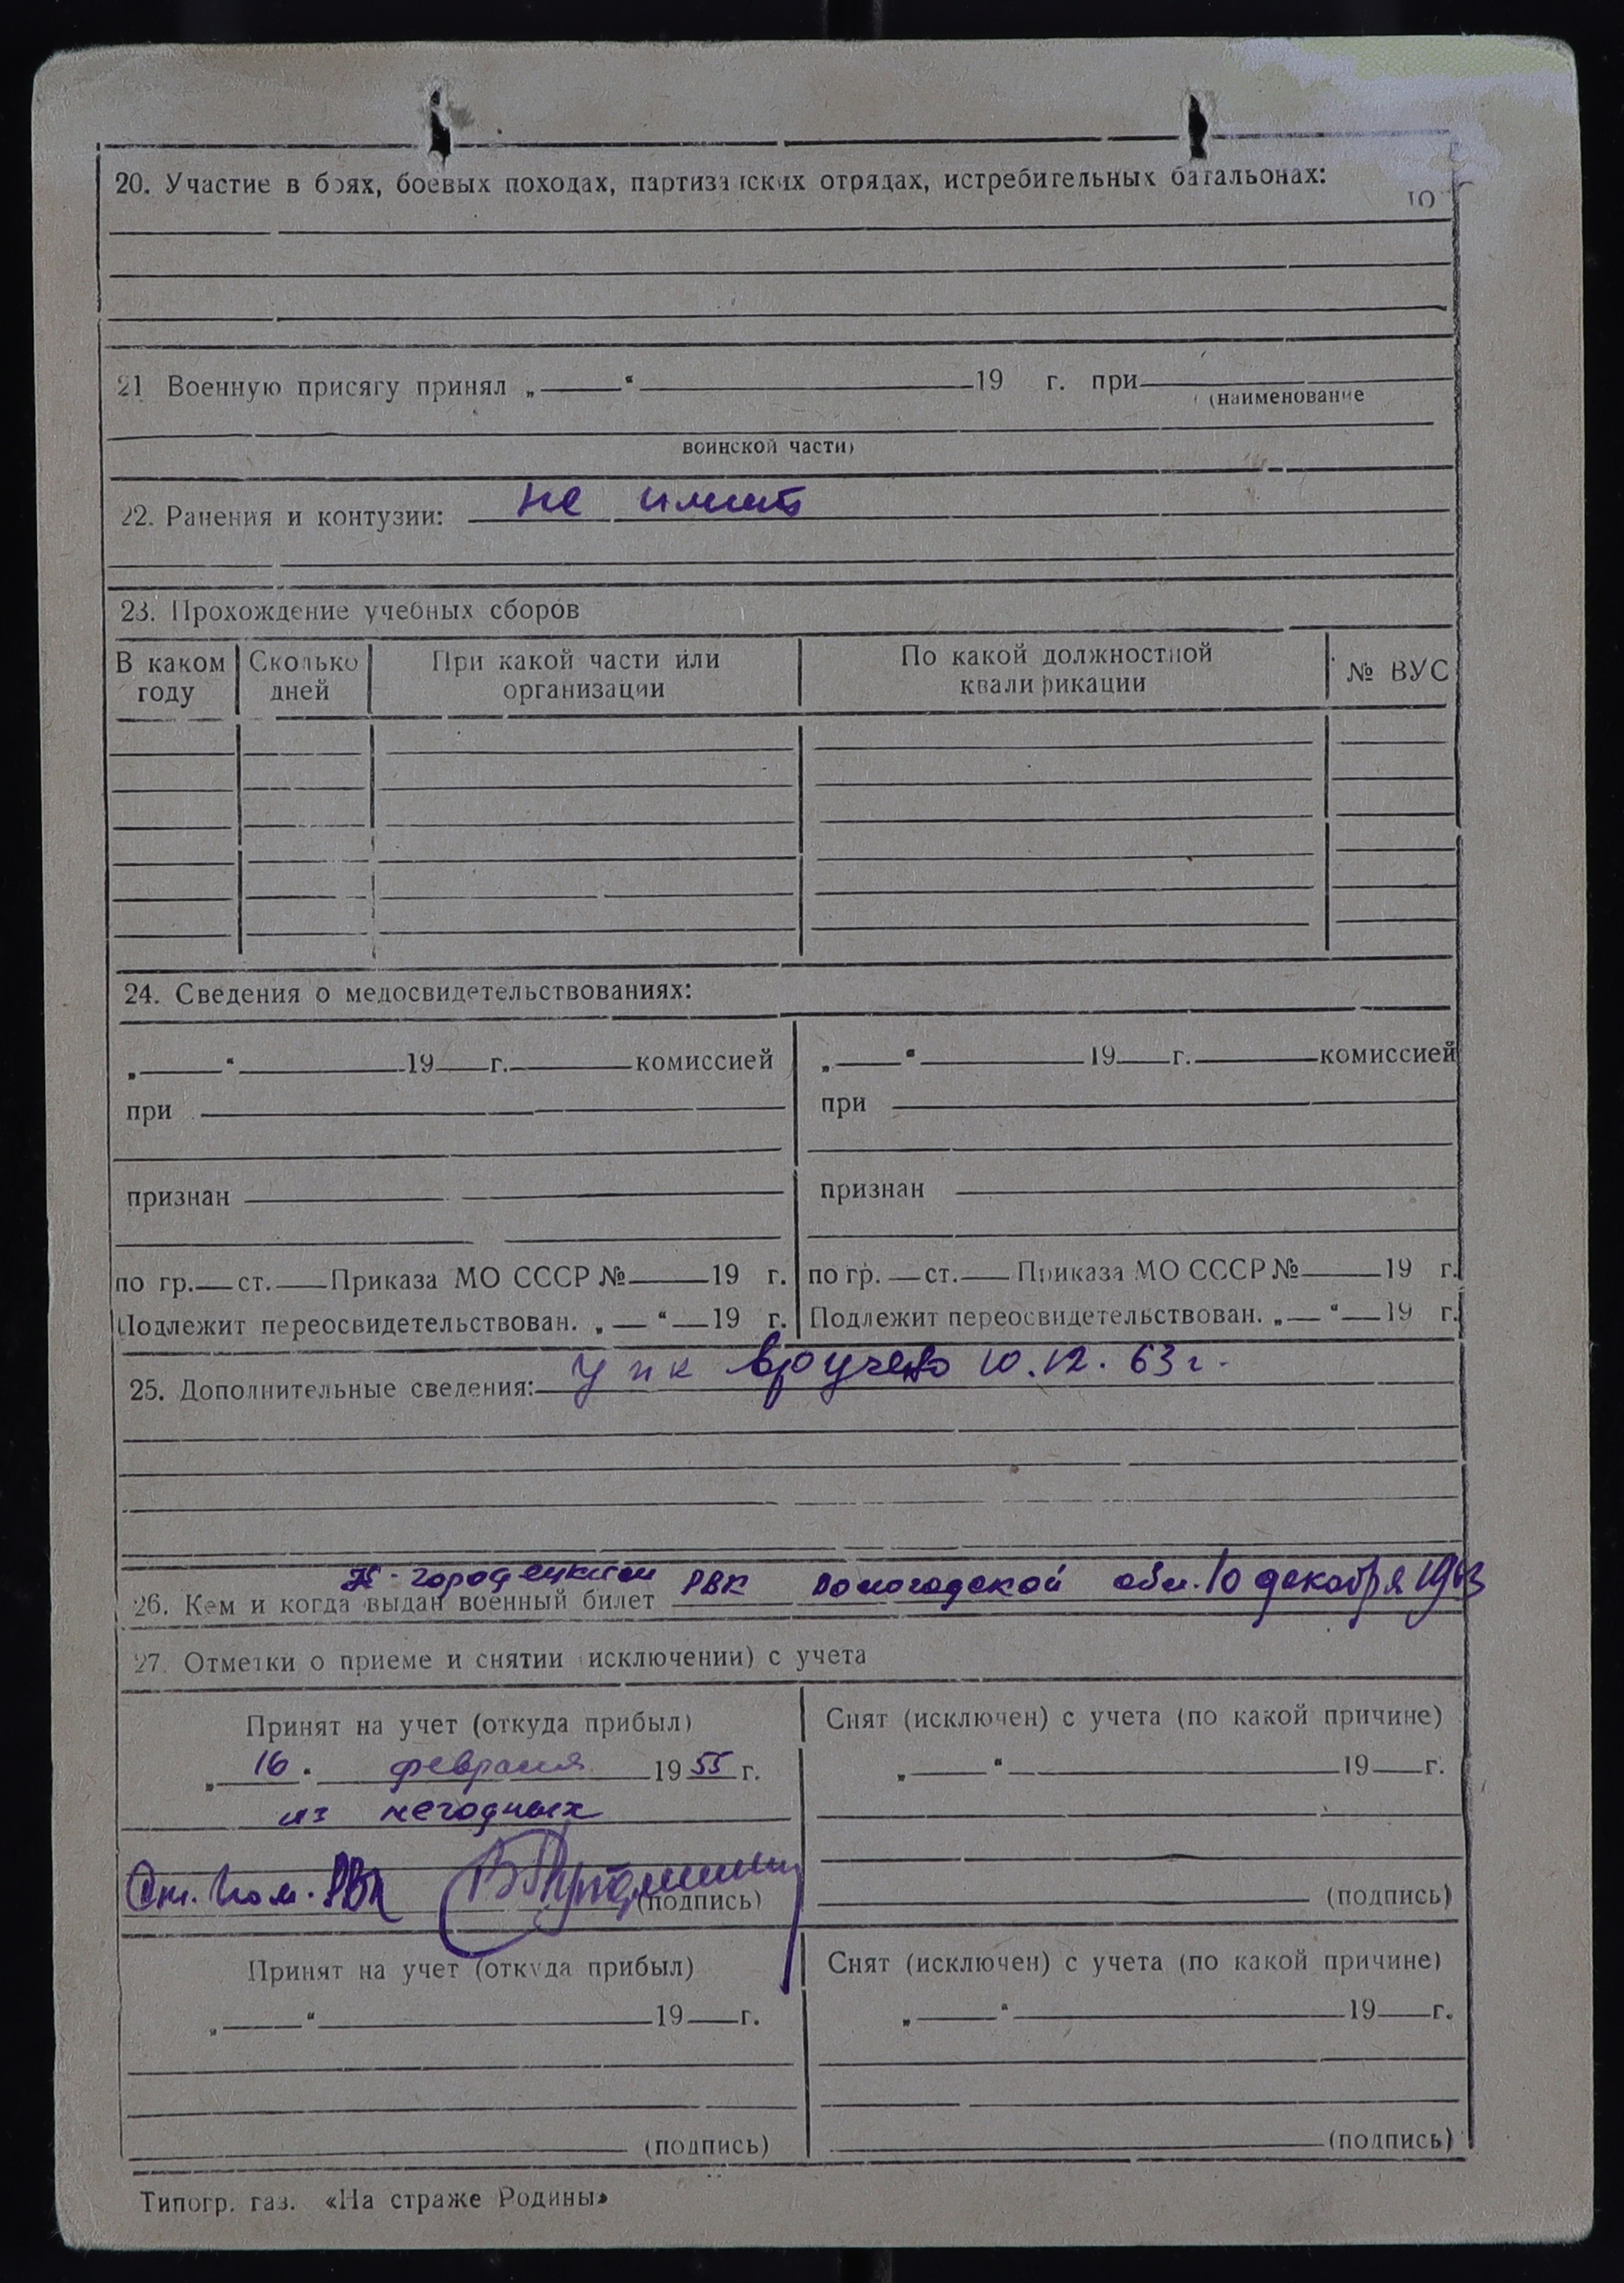 20. Участие в боях, боевых походах, партизанских отрядах, истребительных батальонах:
21 Военную присягу принял „ “ 19 г. при
(наименование
воинской части)
22. Ранения и контузии: не имеет
23. Прохождение учебных сборов
В каком году Сколько дней При какой части или организации По какой должностной квалификации № ВУС
24. Сведения о медосвидетельствованиях:
„ “ 19 г. комиссией
при
признан
по гр. ст. Приказа МО СССР № 19 г.
Подлежит переосвидетельствован. „ “ 19 г.
„ “ 19 г. комиссией
при
признан
по гр. ст. Приказа МО СССР № 19 г.
Подлежит переосвидетельствован. „ “ 19 г.
25. Дополнительные сведения: упк вручено 10.12.63 г.
26. Кем и когда выдан военный билет К-городецким РВК Вологодской обл. 10 декабря 1963
27. Отметки о приеме и снятии (исключении) с учета
Принят на учет (откуда прибыл)
„16“ февраля 1955 г.
из негодных
РВК
(подпись)
Снят (исключен) с учета (по какой причине)
„ “ 19 г.
(подпись)
Принят на учет (откуда прибыл)
„ “ 19 г.
(подпись)
Снят (исключен) с учета (по какой причине)
„ “ 19 г.
(подпись)
Типогр. газ. «На страже Родины»